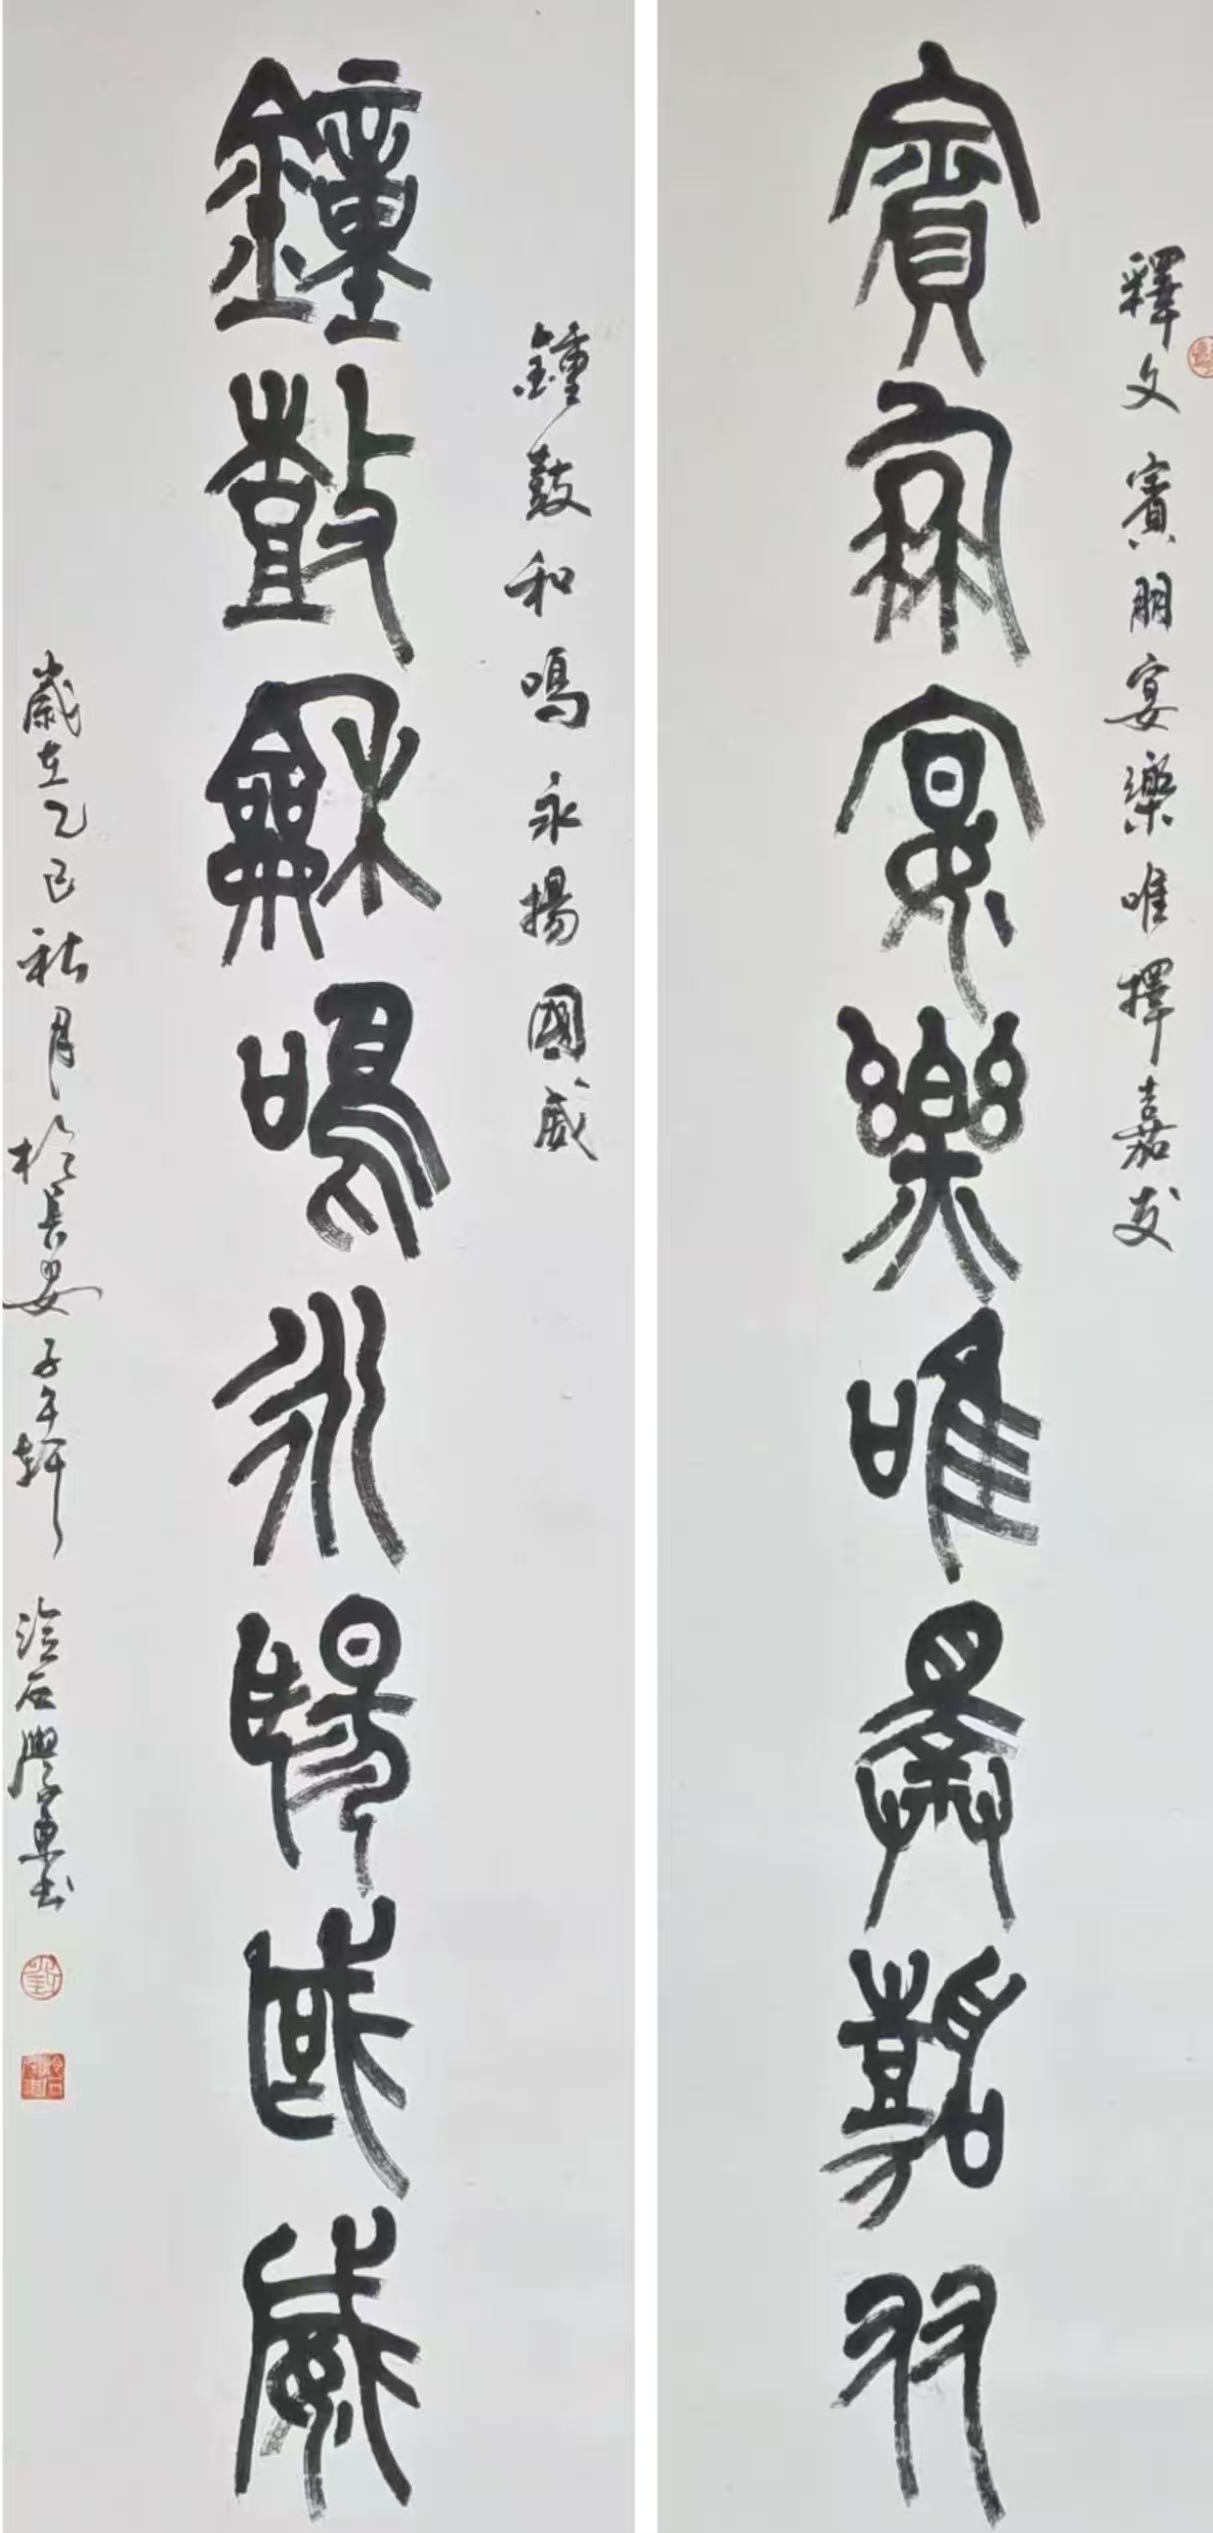 釋文 賓朋宴樂唯擇嘉友
賓朋宴樂唯擇嘉友
鍾鼓和鳴永揚國威
鐘鼓龢鳴永揚國威
歲在乙巳秋月於長安子午軒 冶石學東书